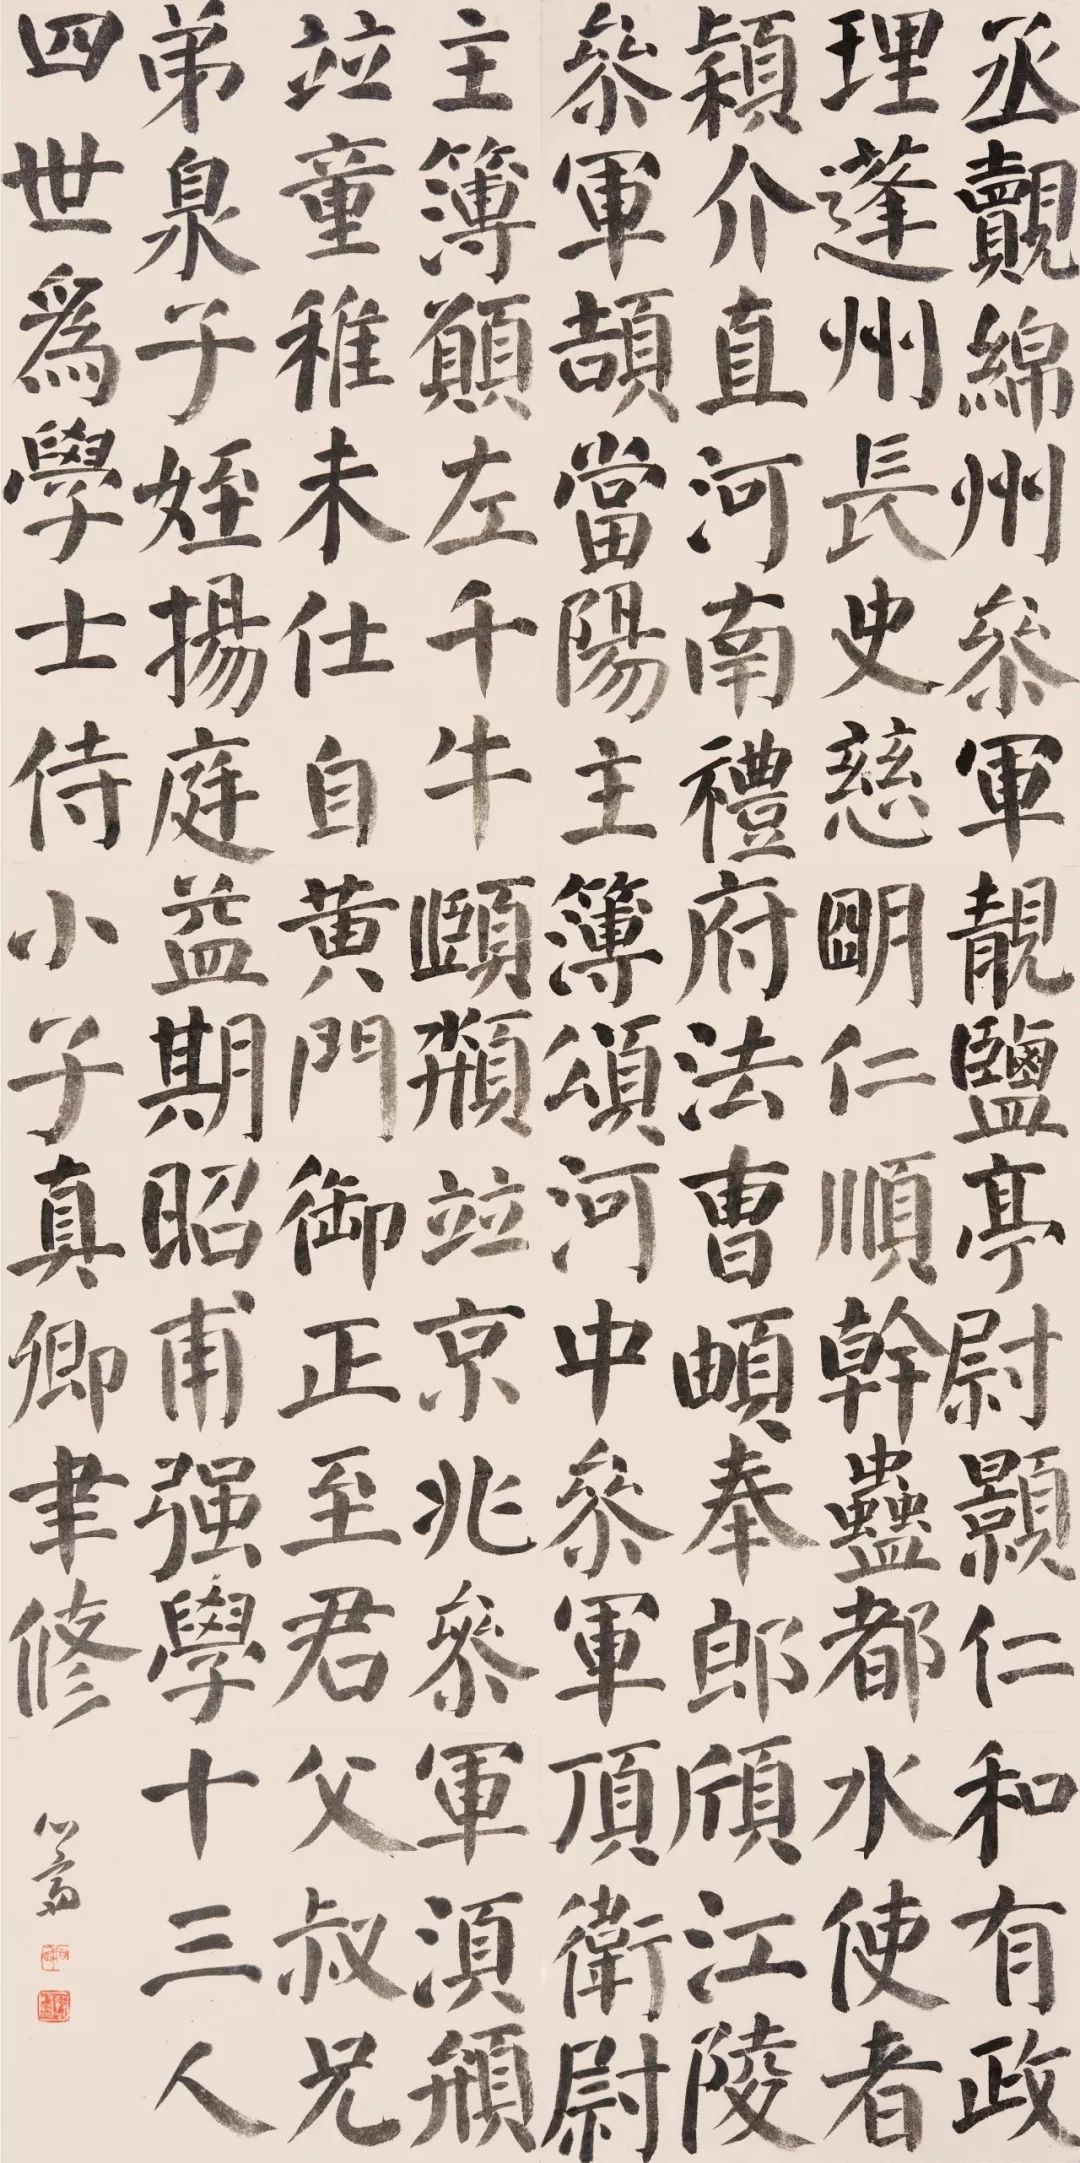 丞覿綿州參軍靚鹽亭尉顥仁和有政
理蓬州長史慈明仁順幹蠱都水使者
穎介直河南禮府法曹頔奉郎頎江陵
參軍頡當陽主簿頌河中參軍頂衛尉
主簿願左千牛頤頫竝京兆參軍湏
竝童稚未仕自黃門御正至君父叔兄
弟泉子姪揚庭益期昭甫强學十三人
四世爲學士侍小子真卿聿修